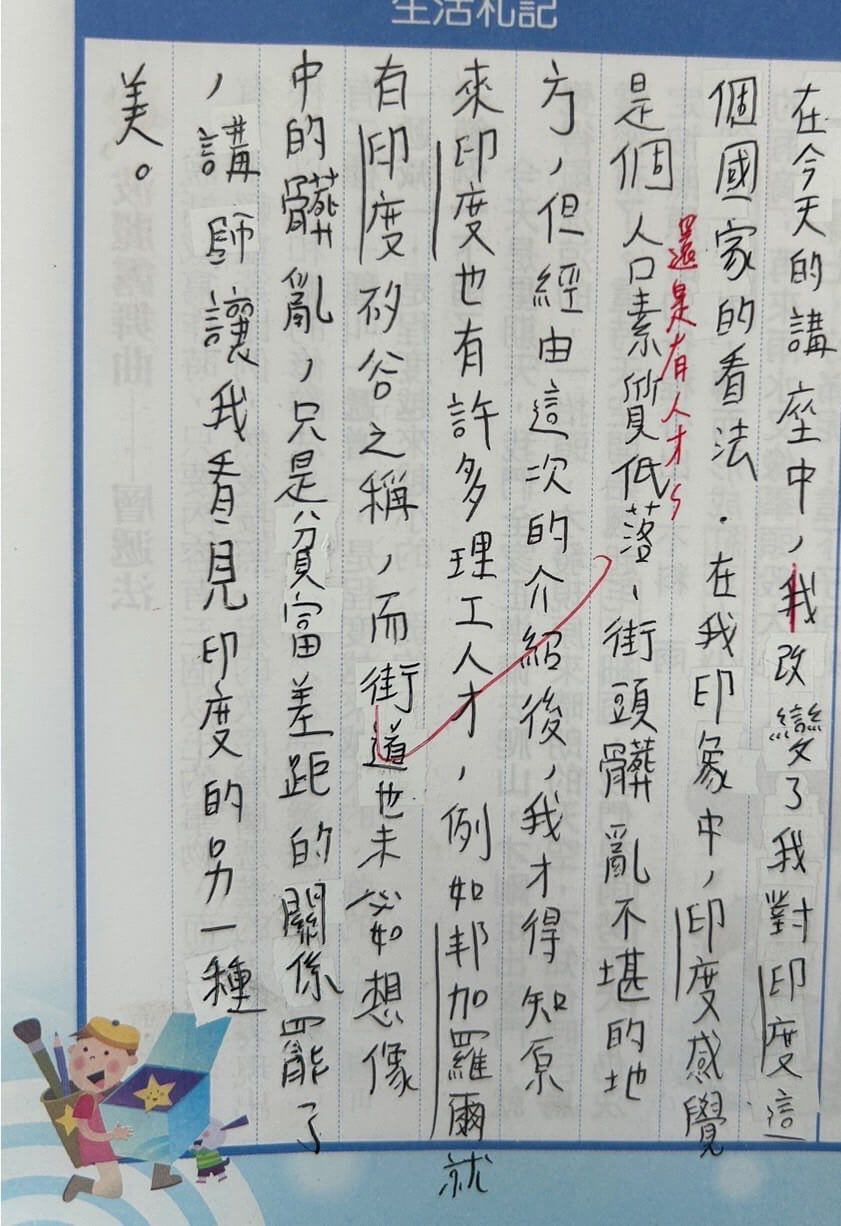 生活札記
在今天的講座中，我改變了我對印度這
個國家的看法．在我印象中，印度感覺
還是有人才
是個人口素質低落、街頭髒亂不堪的地
方，但經由這次的介紹後，我才得知原
來印度也有許多理工人才，例如邦加羅爾就
有印度矽谷之稱，而街道也未必如想像
中的髒亂，只是貧富差距的關係罷了
，講師讓我看見印度的另一種
美。